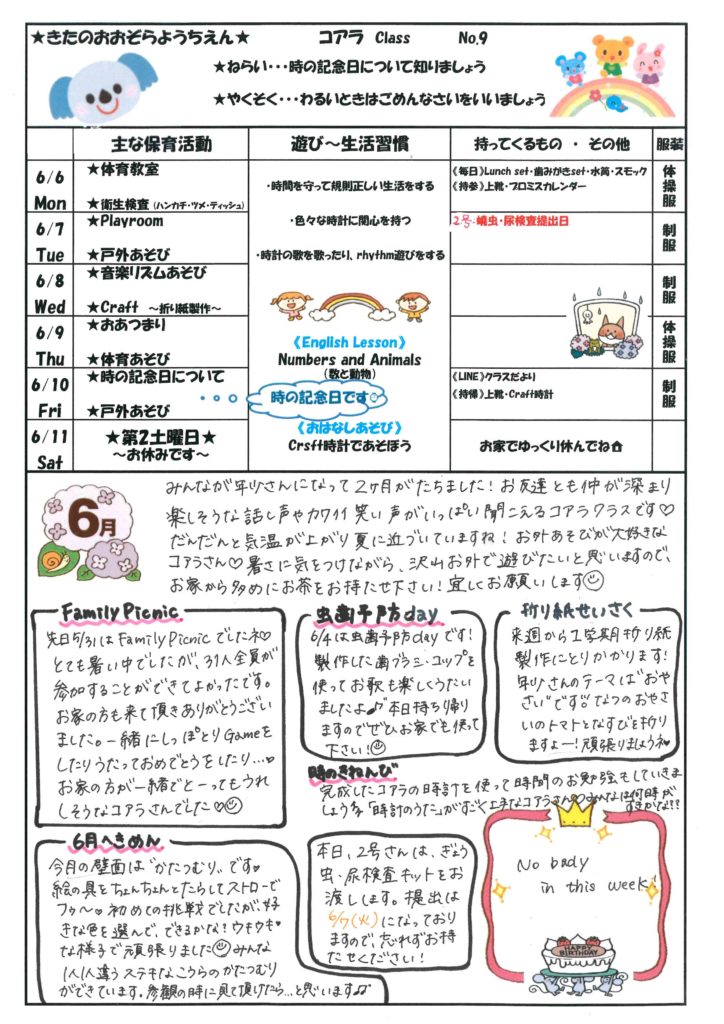 ★きたのおおぞらようちえん★ コアラ Class No.9
★ねらい・・・時の記念日について知りましょう
★やくそく・・・わるいときはごめんなさいをいいましょう
主な保育活動 遊び～生活習慣 持ってくるもの ・ その他 服装
6/6 Mon
★体育教室
★衛生検査 (ハンカチ・ツメ・ティッシュ)
《毎日》Lunch set・歯みがきset・水筒・スモック
《持参》上靴・プロミスカレンダー
体操服
6/7 Tue
★Playroom
★戸外あそび
2号・蟯虫・尿検査提出日
制服
6/8 Wed
★音楽リズムあそび
★Craft ～折り紙製作～
制服
6/9 Thu
★おあつまり
★体育あそび
体操服
6/10 Fri
★時の記念日について
★戸外あそび
《LINE》クラスだより
《持帰》上靴・Craft時計
制服
6/11 Sat
★第2土曜日★
～お休みです～
お家でゆっくり休んでね
・時間を守って規則正しい生活をする
・色々な時計に関心を持つ
・時計の歌を歌ったり、rhythm遊びをする
《English Lesson》
Numbers and Animals
(数と動物)
時の記念日です
《おはなしあそび》
Crsft時計であそぼう
6月
みんなが年少さんになって2ヶ月がたちました！お友達とも仲が深まり
楽しそうな話し声やカワイイ笑い声がいっぱい聞こえるコアラクラスです♡
だんだんと気温が上がり夏に近づいていますね！お外あそびが大好きな
コアラさん♡暑さに気をつけながら、沢山お外で遊びたいと思いますので、
お家から多めにお茶をお持たせ下さい！宜しくお願いします☺
Family Picnic
先日5/31はFamily Picnicでしたネ♡
とても暑い中でしたが、31人全員が
参加することができてよかったです。
お家の方も来て頂きありがとうござい
ました。一緒にしっぽとりGameを
したりうたっておめでとうをしたり…♡
お家の方が一緒でとーってもうれ
しそうなコアラさんでした♡☺
虫歯予防day
6/4は虫歯予防dayです！
製作した歯ブラシ・コップを
使ってお歌も楽しくうたい
ましたよ♪本日持ち帰り
ますのでぜひお家でも使って
下さい！☺
折り紙せいさく
来週から1学期折り紙
製作にとりかかります！
年少さんのテーマは"おやさ
い"です！なつのおやさ
いのトマトとなすびを折り
ますよー！頑張りましょうネ
時のきねんび
完成したコアラの時計を使って時間のお勉強もしていきま
しょう♪「時計のうた」がすごく上手なコアラさん♡みんなは何時が
すきかな??
6月へきめん
今月の壁面は"かたつむり"です♥
絵の具をちょんちょんとたらしてストローで
フゥ～♥初めての挑戦でしたが、好
きな色を選んで、できるかな！ウキウキ
な様子で頑張りました☺みんな
1人1人違うステキなこうらのかたつむり
ができています。参観の時に見て頂けたら…と思います♫
本日、2号さんは、ぎょう
虫・尿検査キットをお
渡しします。提出は
6/7(火)になっており
ますので、忘れずお持
たせください！
No body
in this week!
HAPPY
BIRTHDAY